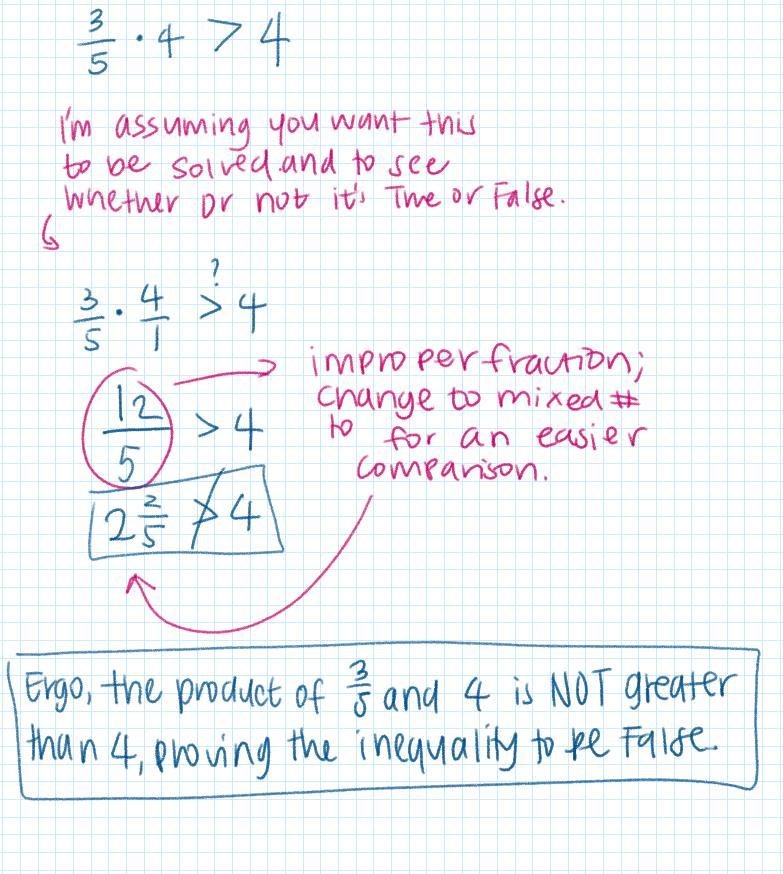 3/5 · 4 > 4
I'm assuming you want this
to be solved and to see
whether or not it's True or False.
?
3/5 · 4/1 > 4
12/5 > 4
improper fraction;
change to mixed #
to for an easier
comparison.
2 2/5 ≯ 4
Ergo, the product of 3/5 and 4 is NOT greater
than 4, proving the inequality to be False.